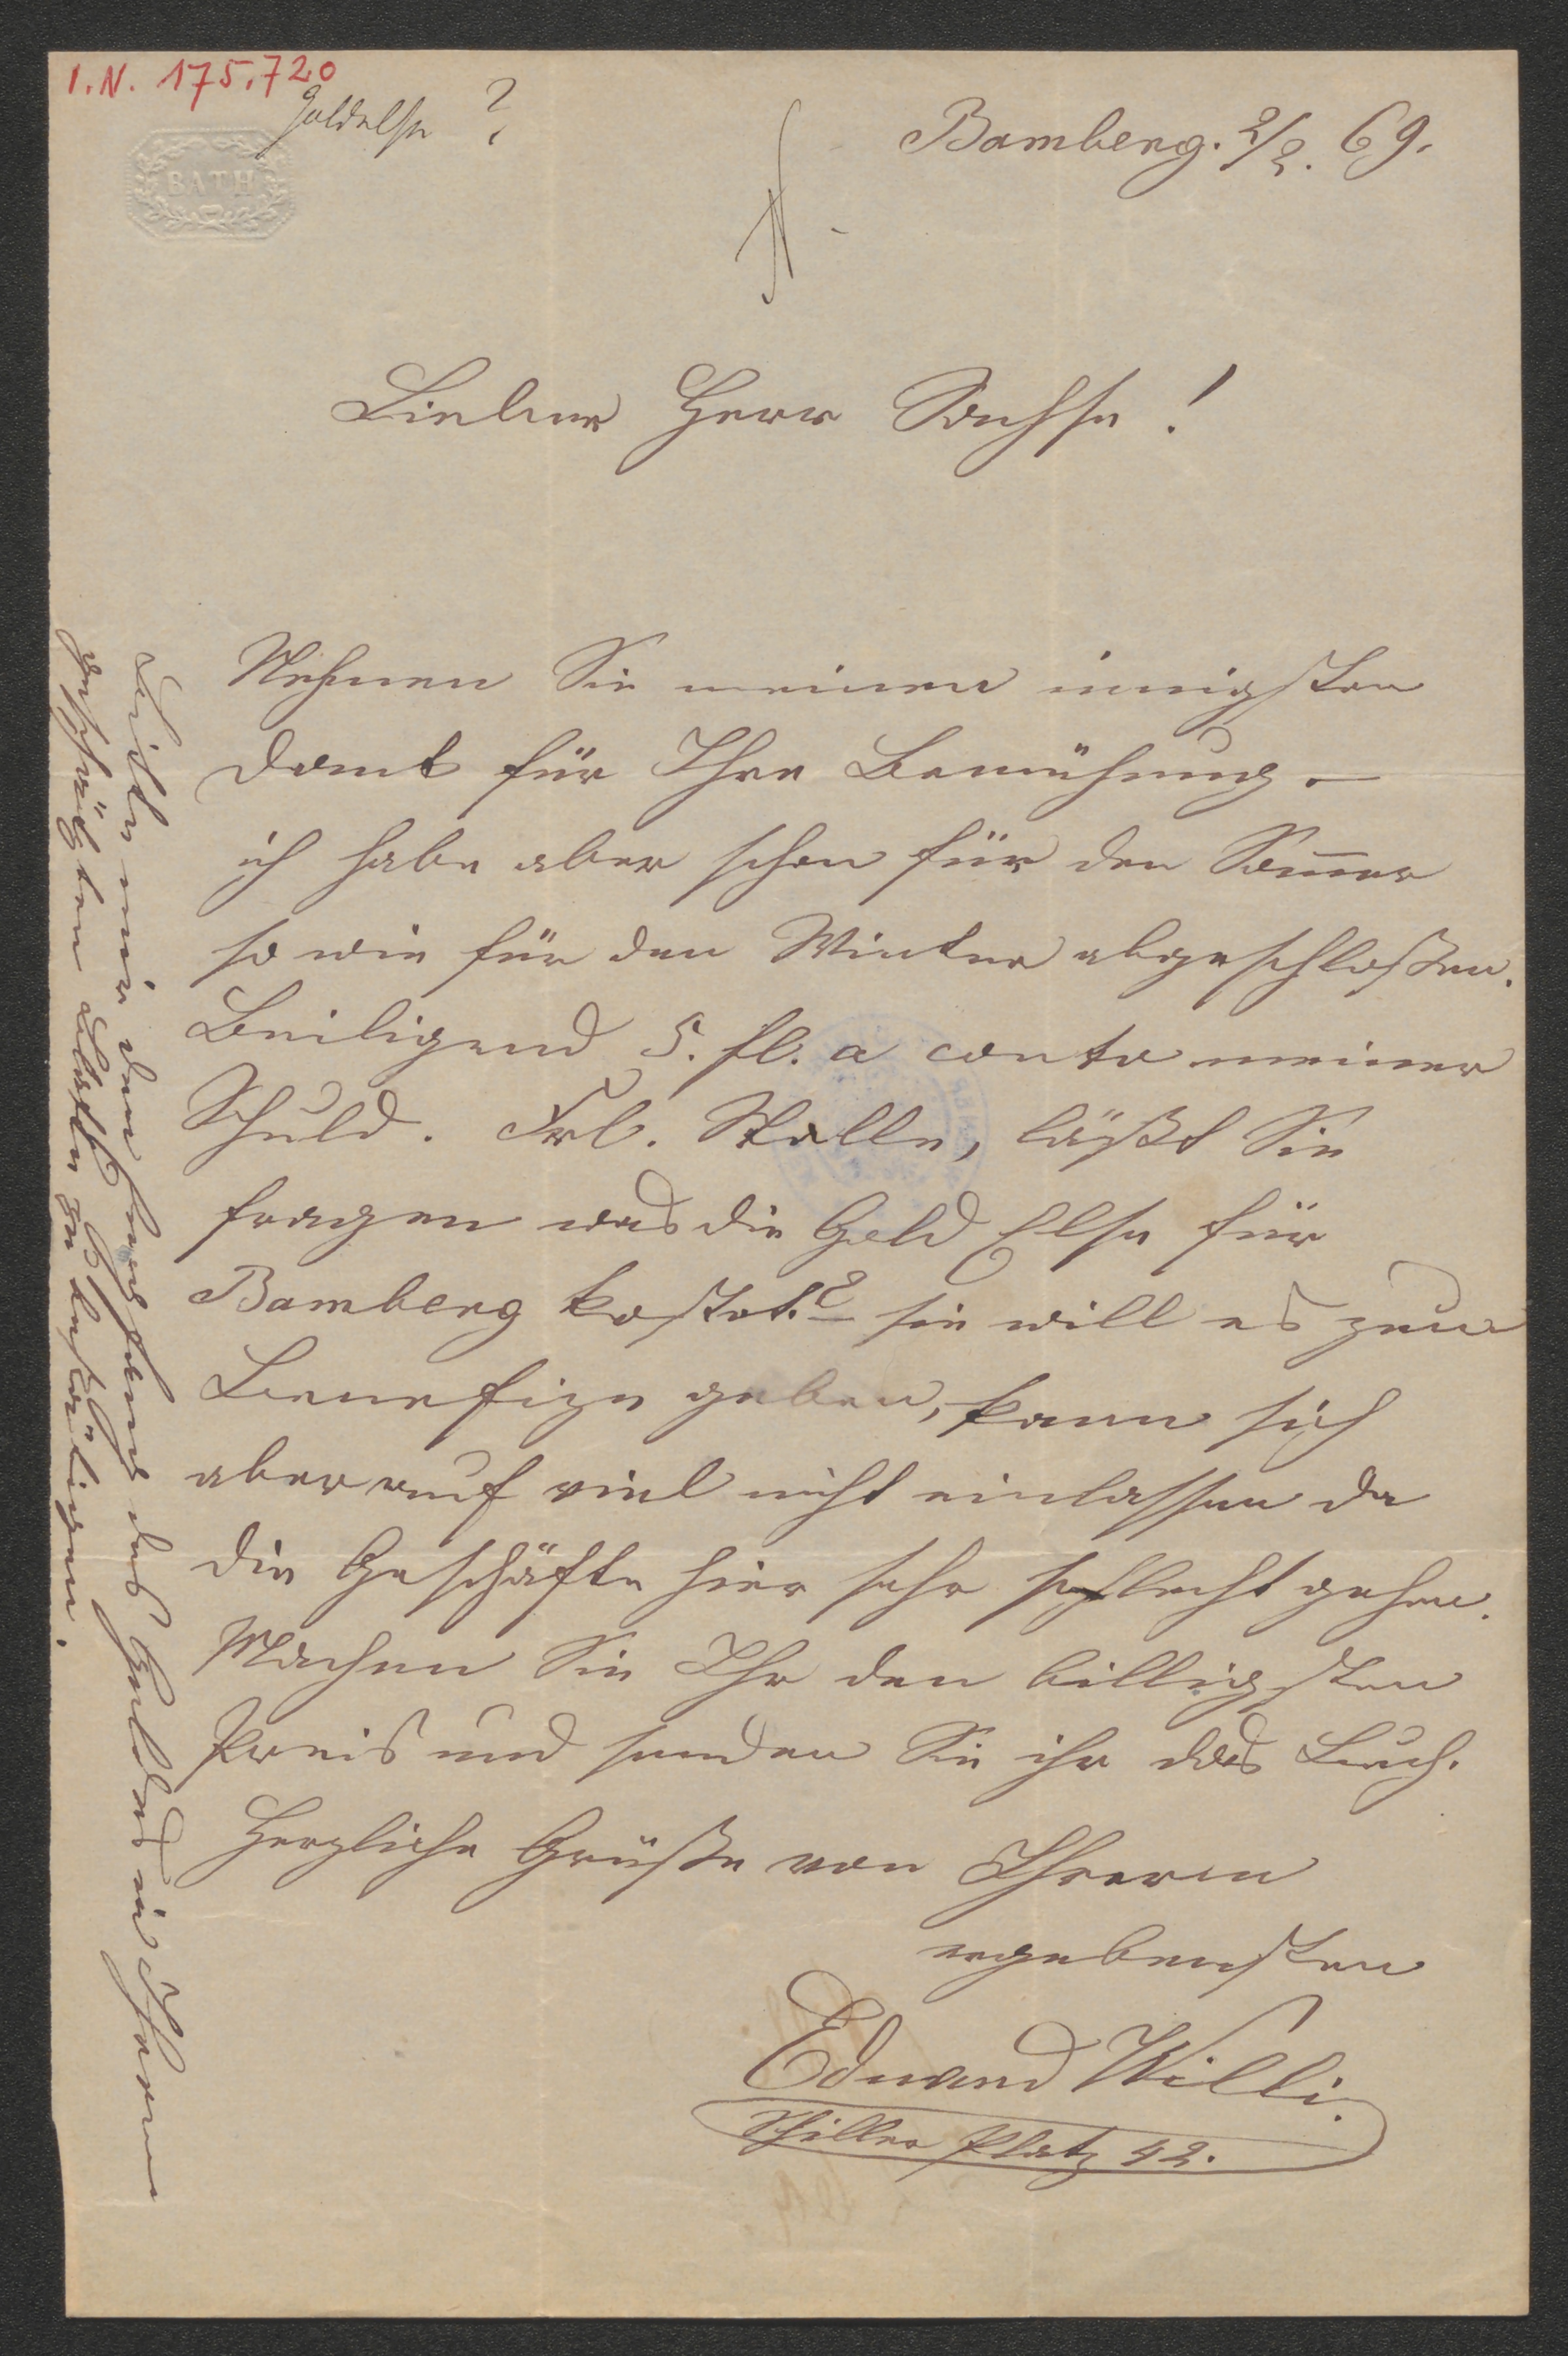 I.N. 175.720
Goldelse ?
BATH
Bamberg. 2/2. 69.
Lieber Herr Sachse!
Nehmen Sie meinen innigsten
Dank für Ihre Bemühung. –
ich habe aber schon für den Som̅er
so wie für den Winter abgeschloßen.
Beiligend 5. fl. a conto meiner
Schuld. Frl. Stolle, läßt Sie
fragen was die Gold Else für
Bamberg kostet? sie will es zum
Benefize geben, kann sich
aber auf viel nicht einlassen da
die Geschäfte hier sehr schlecht gehen.
Machen Sie Ihr den billigsten
Preis und senden Sie ihr das Buch.
Herzliche Grüße von Ihrem
ergebensten
Eduard Willi.
Schiller Platz 42.
Bitte mir den Empfang des Geldes in Ihrem
geschätzten Blatte zu bestätigen.